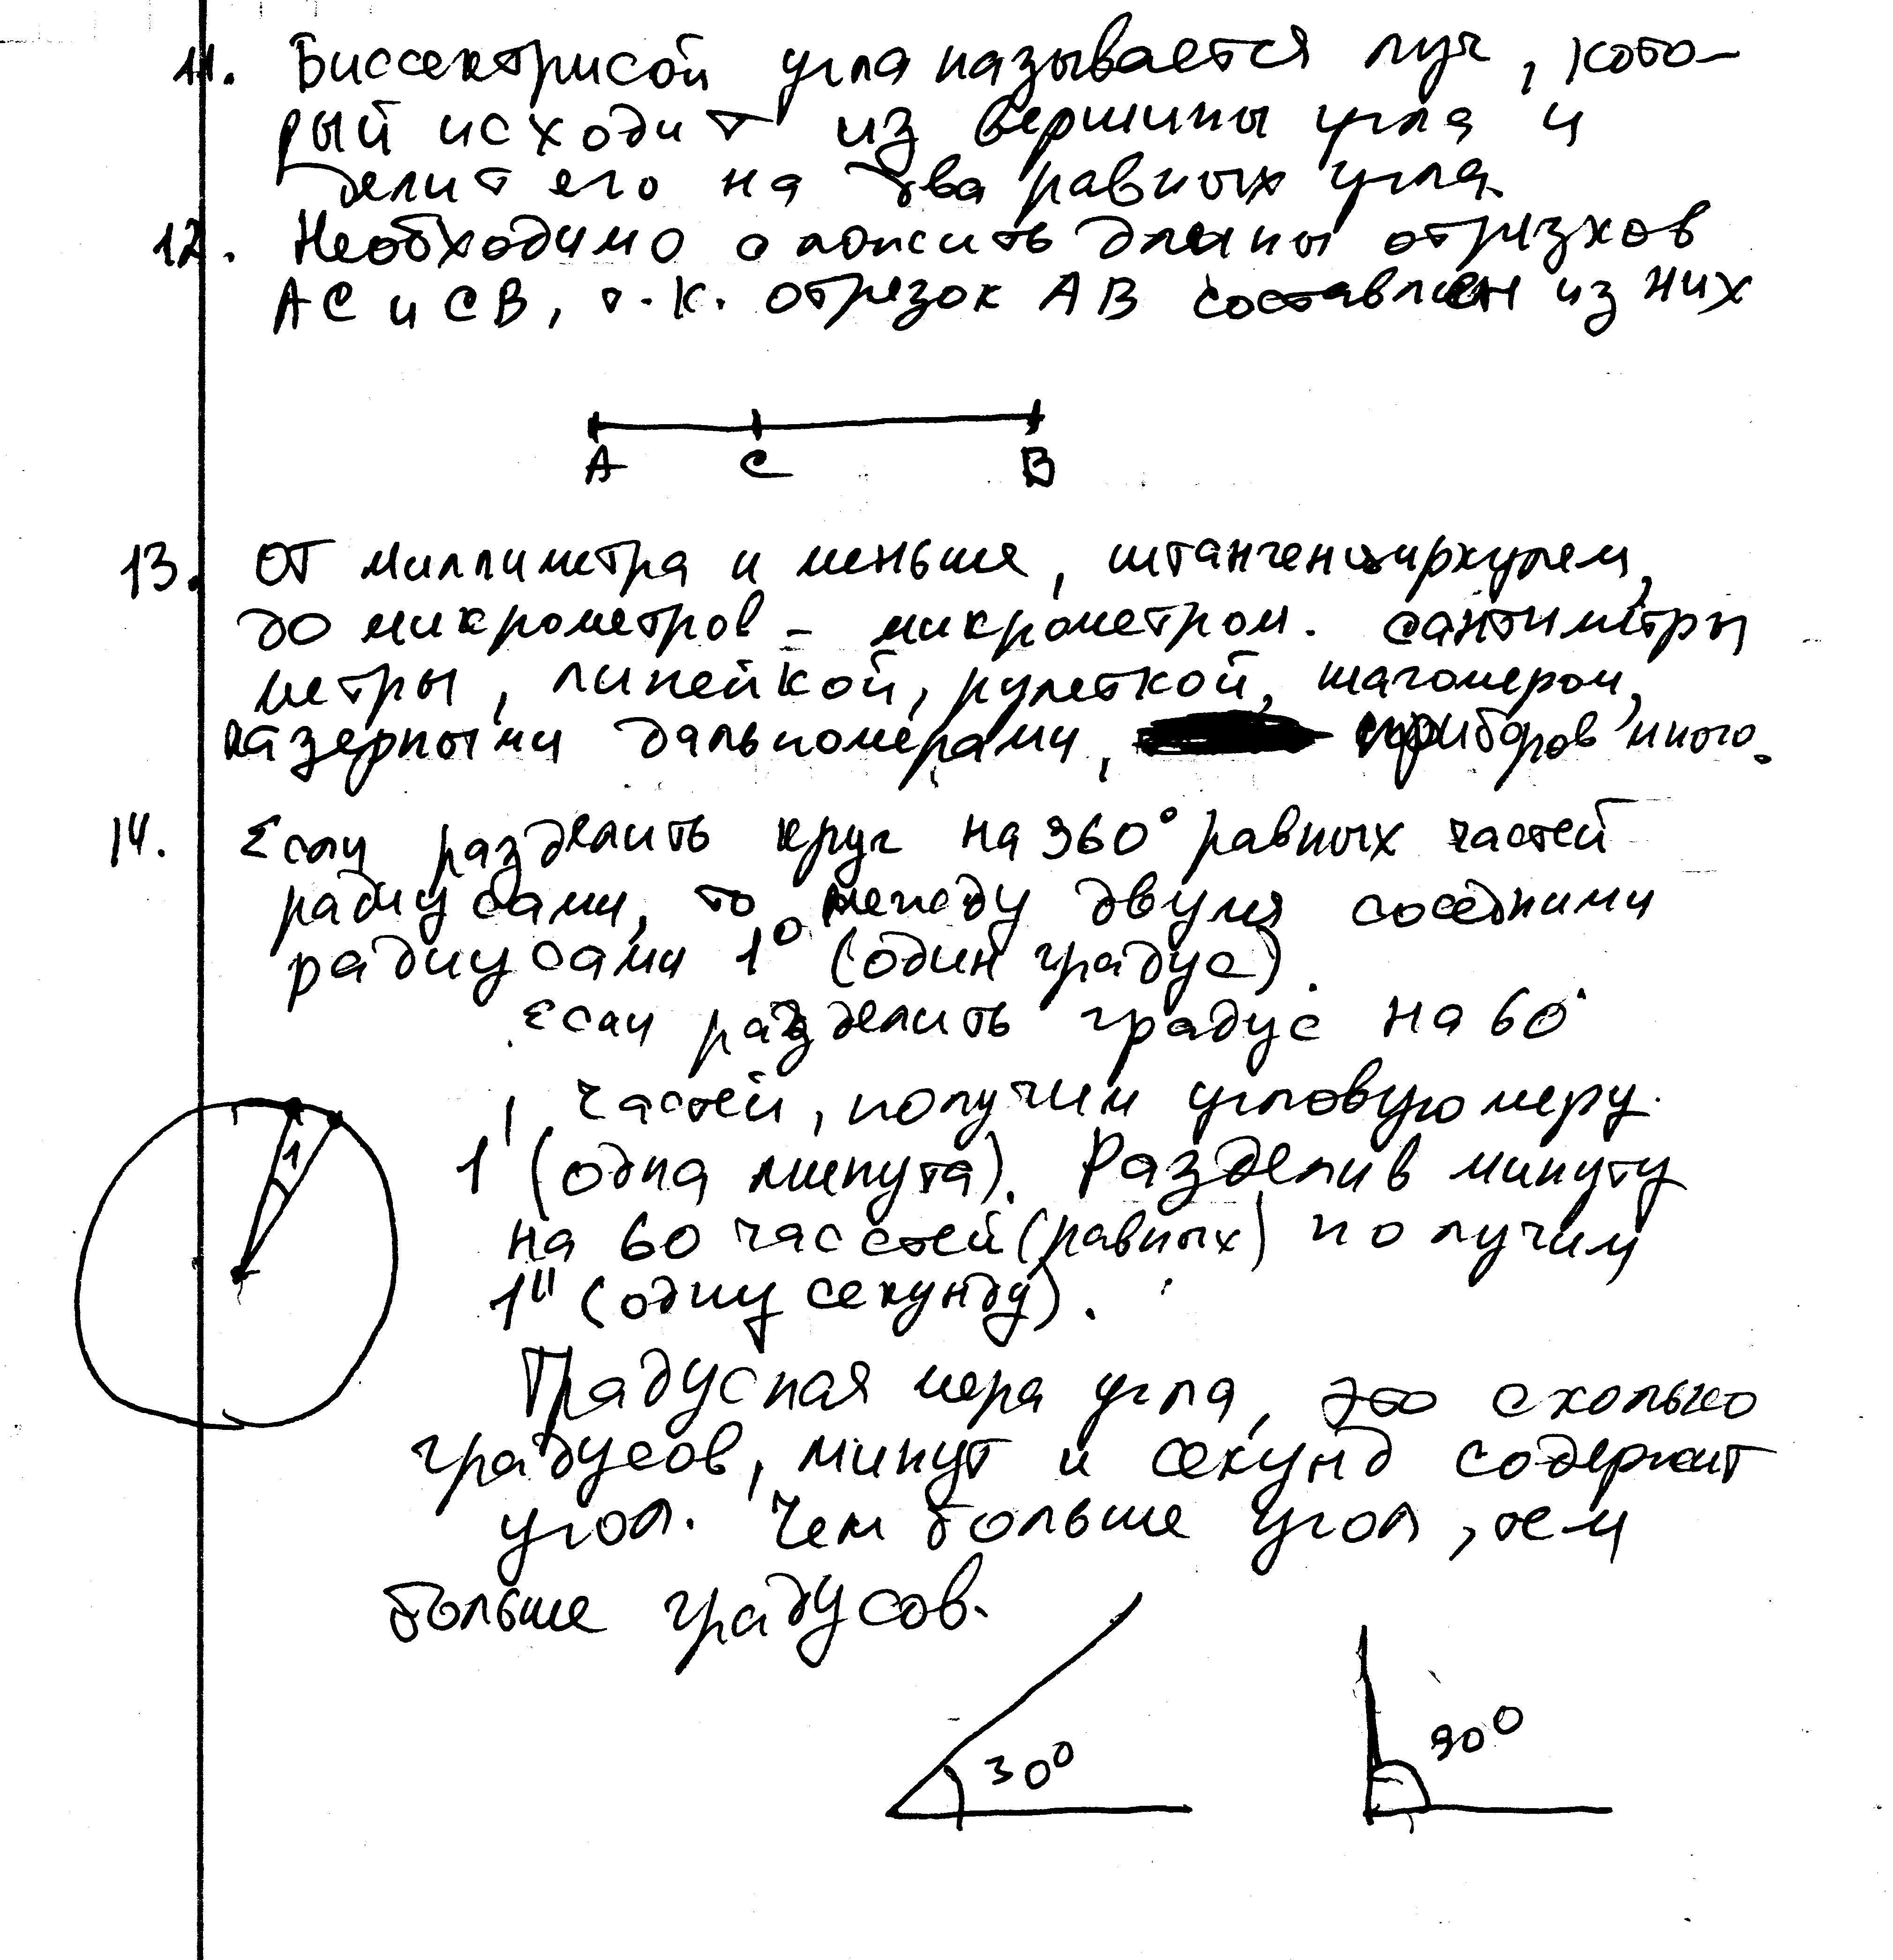 11. Биссектрисой угла называется луч, кото-
рый исходит из вершины угла и
делит его на два равных угла.
12. Необходимо сложить длины отрезков
АС и СВ, т.к. отрезок АВ составлен из них
А С В
13. От миллиметра и меньше, штангенциркулем,
до микрометров - микрометром. сантиметры
метры, линейкой, рулеткой, шагомером,
лазерными дальномерами, приборов много.
14. Если разделить круг на 360° равных частей
радиусами, то между двумя соседними
радиусами 1° (один градус).
Если разделить градус на 60
частей, получим угловую меру
1' (одна минута). Разделив минуту
на 60 часстей (равных) получим
1" (одну секунду).
1
Градусная мера угла, это сколько
градусов, минут и секунд содержит
угол. Чем больше угол, тем
больше градусов.
30° 90°